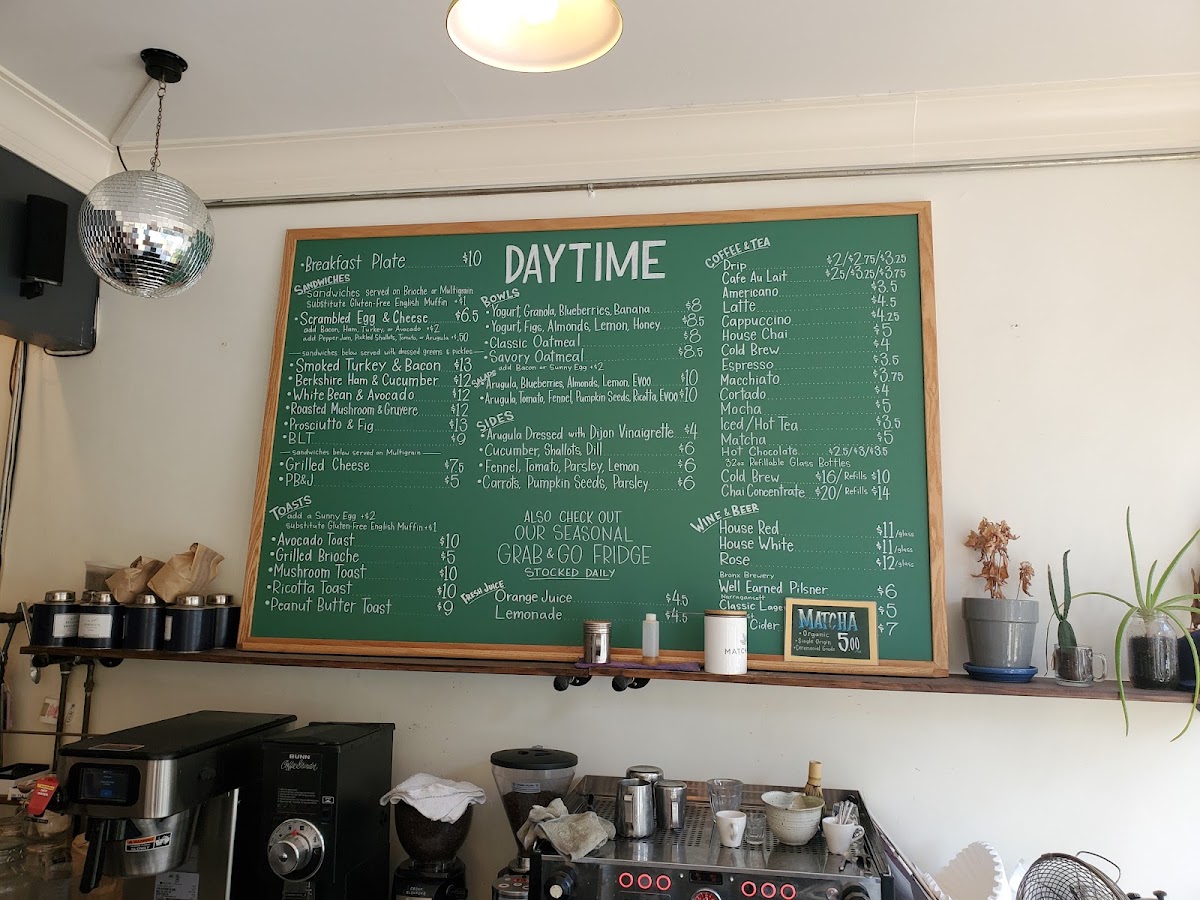 DAYTIME
• Breakfast Plate $10
SANDWICHES
Sandwiches served on Brioche or Multigrain
substitute Gluten-Free English Muffin +$1
• Scrambled Egg & Cheese $6.5
add Bacon, Ham, Turkey, or Avocado +$2
add Pepper Jam, Pickled Shallots, Tomato, or Arugula +1.50
sandwiches below served with dressed greens & pickles
• Smoked Turkey & Bacon $13
• Berkshire Ham & Cucumber $12
• White Bean & Avocado $12
• Roasted Mushroom & Gruyere $12
• Prosciutto & Fig $13
• BLT $9
sandwiches below served on Multigrain
• Grilled Cheese $7.5
• PB&J $5
TOASTS
add a Sunny Egg +$2
substitute Gluten-Free English Muffin +$1
• Avocado Toast $10
• Grilled Brioche $5
• Mushroom Toast $10
• Ricotta Toast $10
• Peanut Butter Toast $9
BOWLS
• Yogurt, Granola, Blueberries, Banana $8
• Yogurt, Figs, Almonds, Lemon, Honey $8.5
• Classic Oatmeal $8
• Savory Oatmeal $8.5
add Bacon or Sunny Egg +$2
SALADS
• Arugula, Blueberries, Almonds, Lemon, EVOO $10
• Arugula, Tomato, Fennel, Pumpkin Seeds, Ricotta, EVOO $10
SIDES
• Arugula Dressed with Dijon Vinaigrette $4
• Cucumber, Shallots, Dill $6
• Fennel, Tomato, Parsley, Lemon $6
• Carrots, Pumpkin Seeds, Parsley $6
ALSO CHECK OUT
OUR SEASONAL
GRAB & GO FRIDGE
STOCKED DAILY
FRESH JUICE
Orange Juice $4.5
Lemonade $4.5
COFFEE & TEA
Drip $2/$2.75/$3.25
Cafe Au Lait $2.5/$3.25/$3.75
Americano $3.5
Latte $4.5
Cappuccino $4.25
House Chai $5
Cold Brew $4
Espresso $3.5
Macchiato $3.75
Cortado $4
Mocha $5
Iced/Hot Tea $3.5
Matcha $5
Hot Chocolate $2.5/$3/$3.5
32oz Refillable Glass Bottles
Cold Brew $16/Refills $10
Chai Concentrate $20/Refills $14
WINE & BEER
House Red $11/glass
House White $11/glass
Rose $12/glass
Bronx Brewery
Well Earned Pilsner $6
Narragansett
Classic Lager $5
Cider $7
MATCHA
• Organic
• Single Origin
• Ceremonial Grade
5.00
MATCH
BUNN